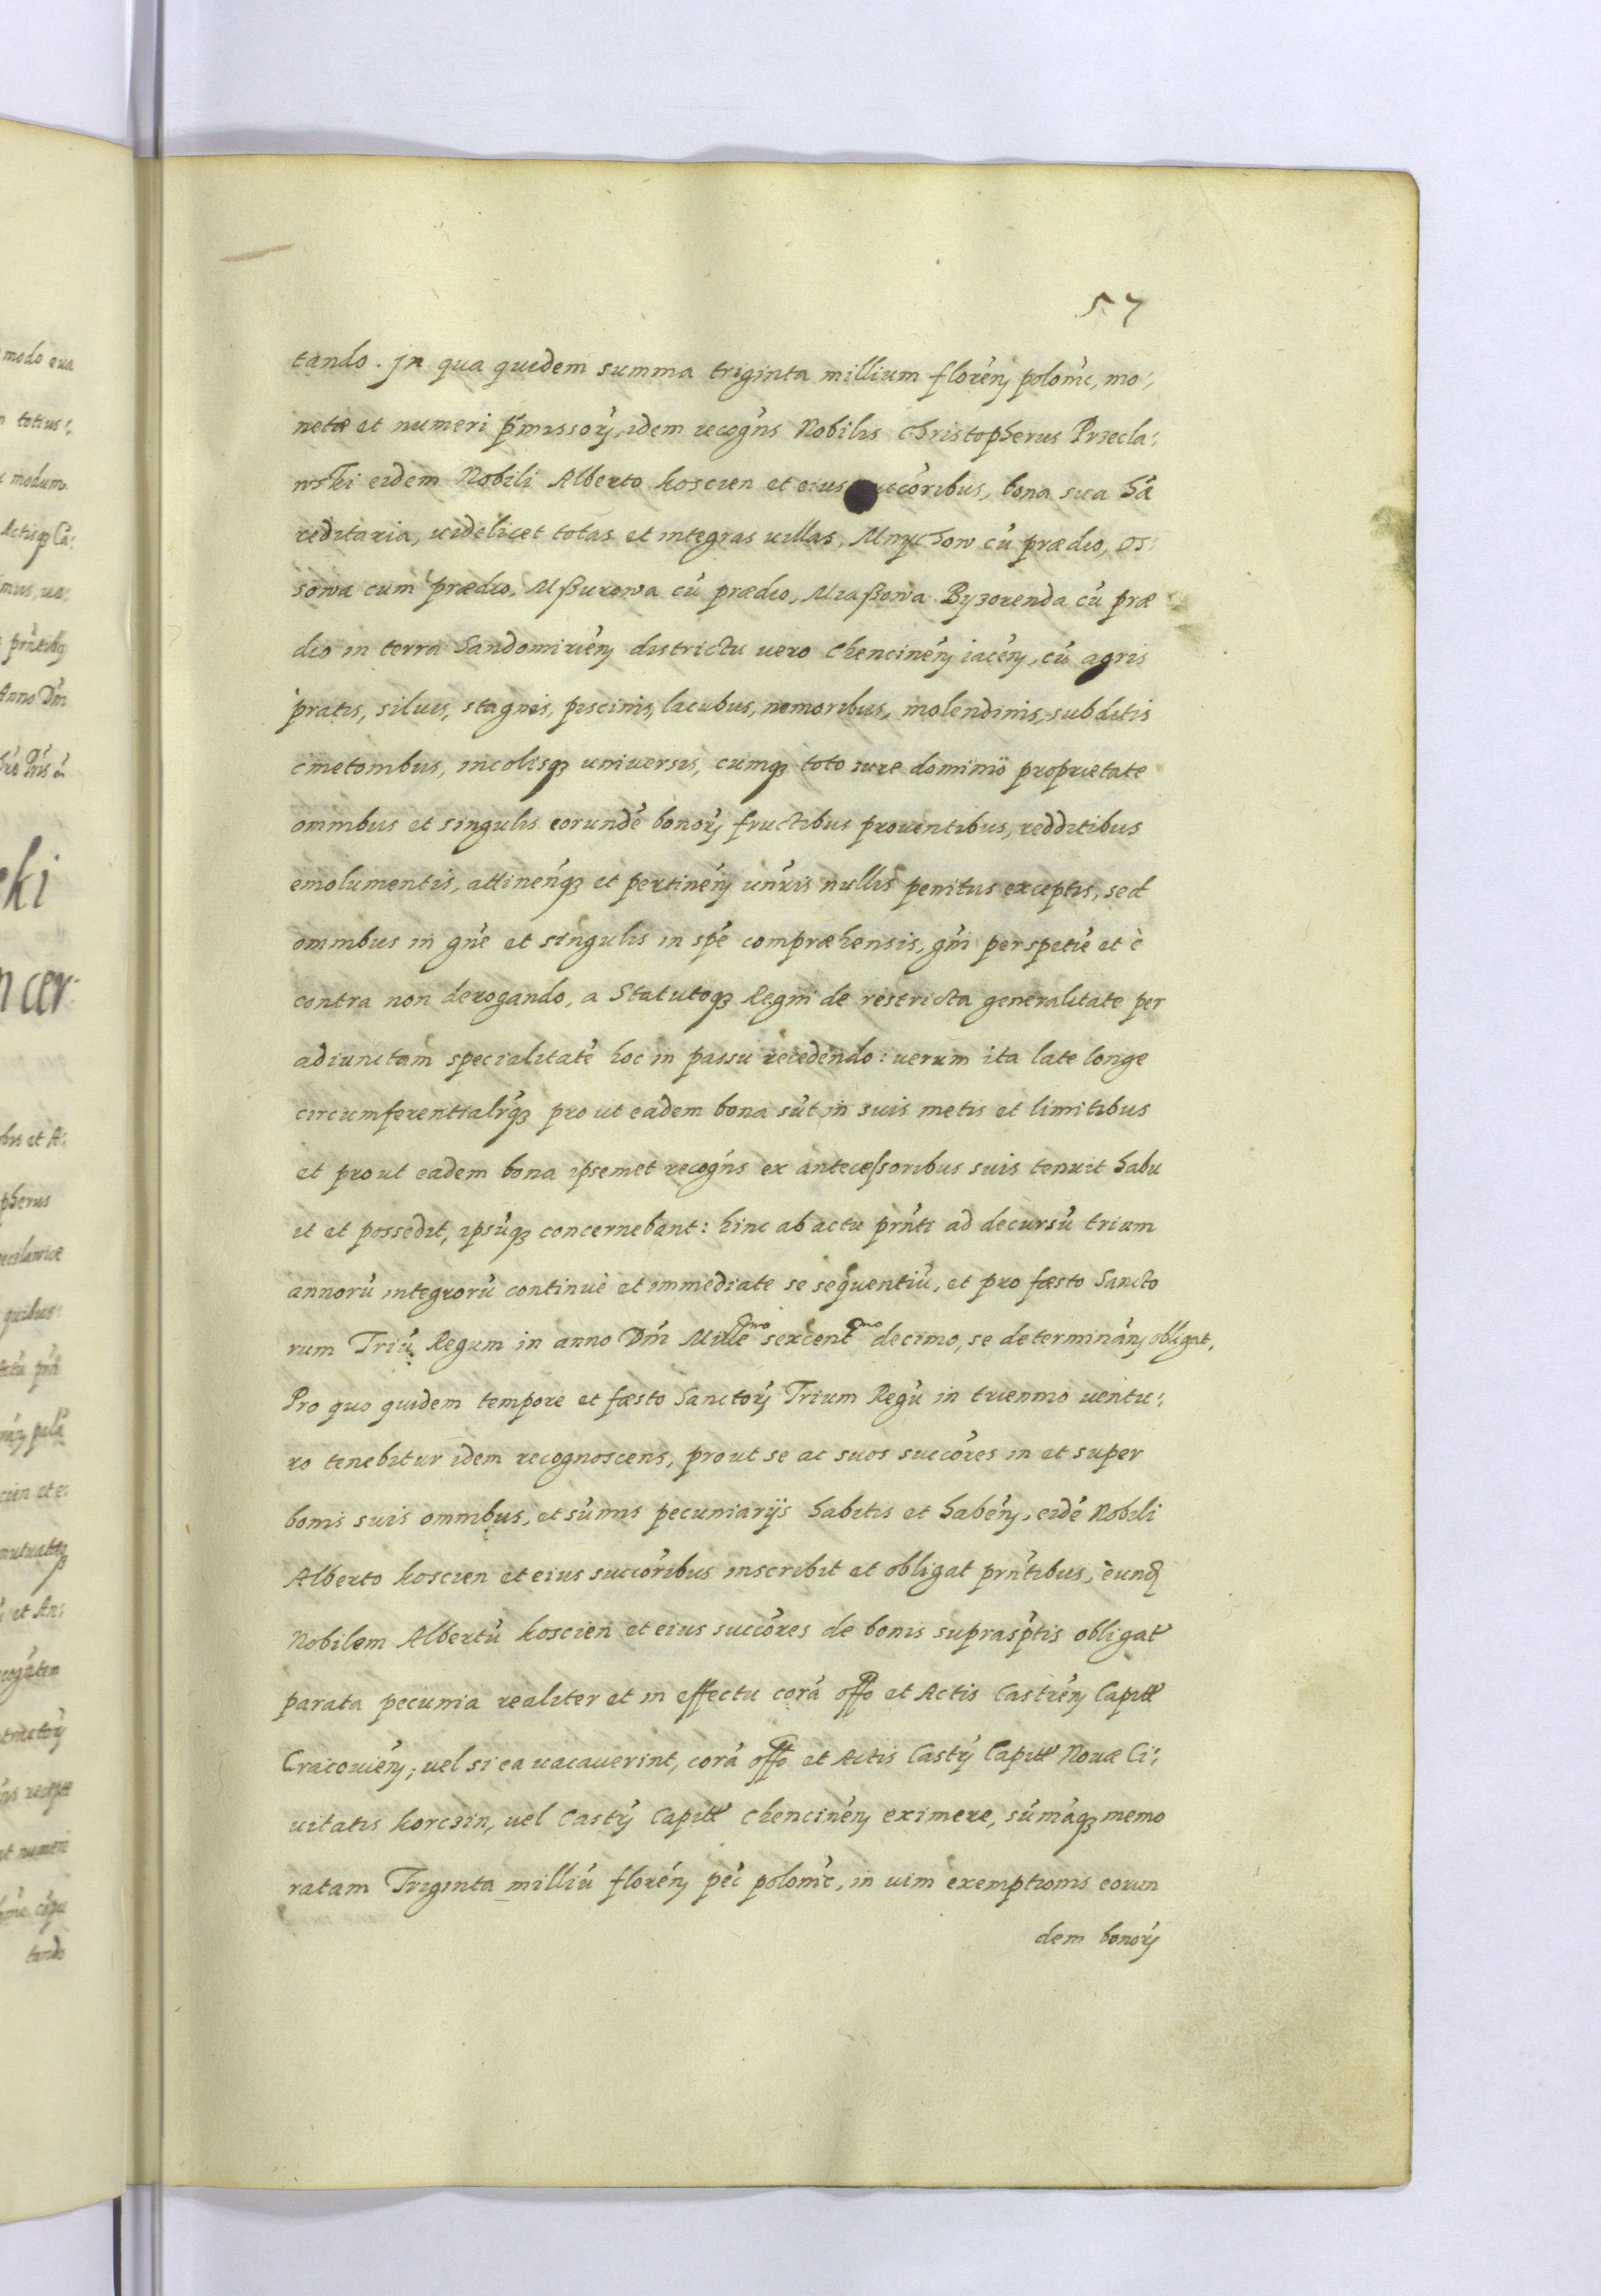 57
tando. Jn qua quidem summa triginta millium floren̄ polonic̄, mo:
netæ et numeri p̄missor̄, idem recogn̄s Nobilis Christopherus Przecla:
wski eidem Nobili Alberto Koscien et eius uccōribus, bona sua hæ
reditaria, uidelicet totas et integras uillas, Mnychow cū prædio, Os:
sowa cum prædio, Mſzurowa cū prædio, Miaſsowa Byzorenda cū præ
dio in terra Sandomirien̄ districtu uero Chencinen̄ iacen̄, cū agris
pratis, siluis, stagnis, piscinis, lacubus, nemoribus, molendinis, subditis
cmetonibus, incolisq₃ uniuersis, cumq₃ toto iure dominio proprietate
omnibus et singulis eorundē bonor̄ fructibus prouentibus, redditibus
emolumentis, attinen̄q₃ et pertinen̄ un̄ris nullis penitus exceptis, sed
omnibus in gn̄e et singulis in spē compræhensis, gn̄i per spetiē et è
contra non derogando, a Statutoq₃ Regni de restricta generalitate per
adiunctam specialitatē hoc in passu recedendo: uerum ita late longe
circumferentialr̄q₃ prout eadem bona sūt in suis metis et limitibus
et prout eadem bona ipsemet recogn̄s ex antecessoribus suis tenuit habu
it et possedit, ipsūq₃ concernebant: hinc ab actu prn̄ti ad decursū trium
annorū integrorū continuè et immediate se sequentiū, et pro fæsto Sancto
rum Triū Regum in anno Dn̄i Mille͠mo sexcent͠mo decimo, se determinan̄ obligat,
Pro quo quidem tempore et fæsto Sanctor̄ Trium Regū in triennio uentu:
ro tenebitur idem recognoscens, prout se ac suos succōres in et super
bonis suis omnibus, et sūmis pecuniarijs habitis et haben̄, eidē Nobili
Alberto Koscien et eius succōribus inscribit et obligat prn̄tibus, eund̄
Nobilem Albertū Koscien et eius succōres de bonis suprasp̄tis obligat̄
parata pecunia realiter et in effectu corā off̄o et Actis Castren̄ Capitt̄
Cracouien̄; uel si ea uacauerint, corā off̄o et Actis Castr̄ Capitt̄ Nouæ Ci:
uitatis Korczin, uel Castr̄ Capitt̄ Chencinen̄ eximere, sūmāq₃ memo
ratam Triginta milliū floren̄ pec̄ polonic̄, in uim exemptionis eorun
dem bonor̄